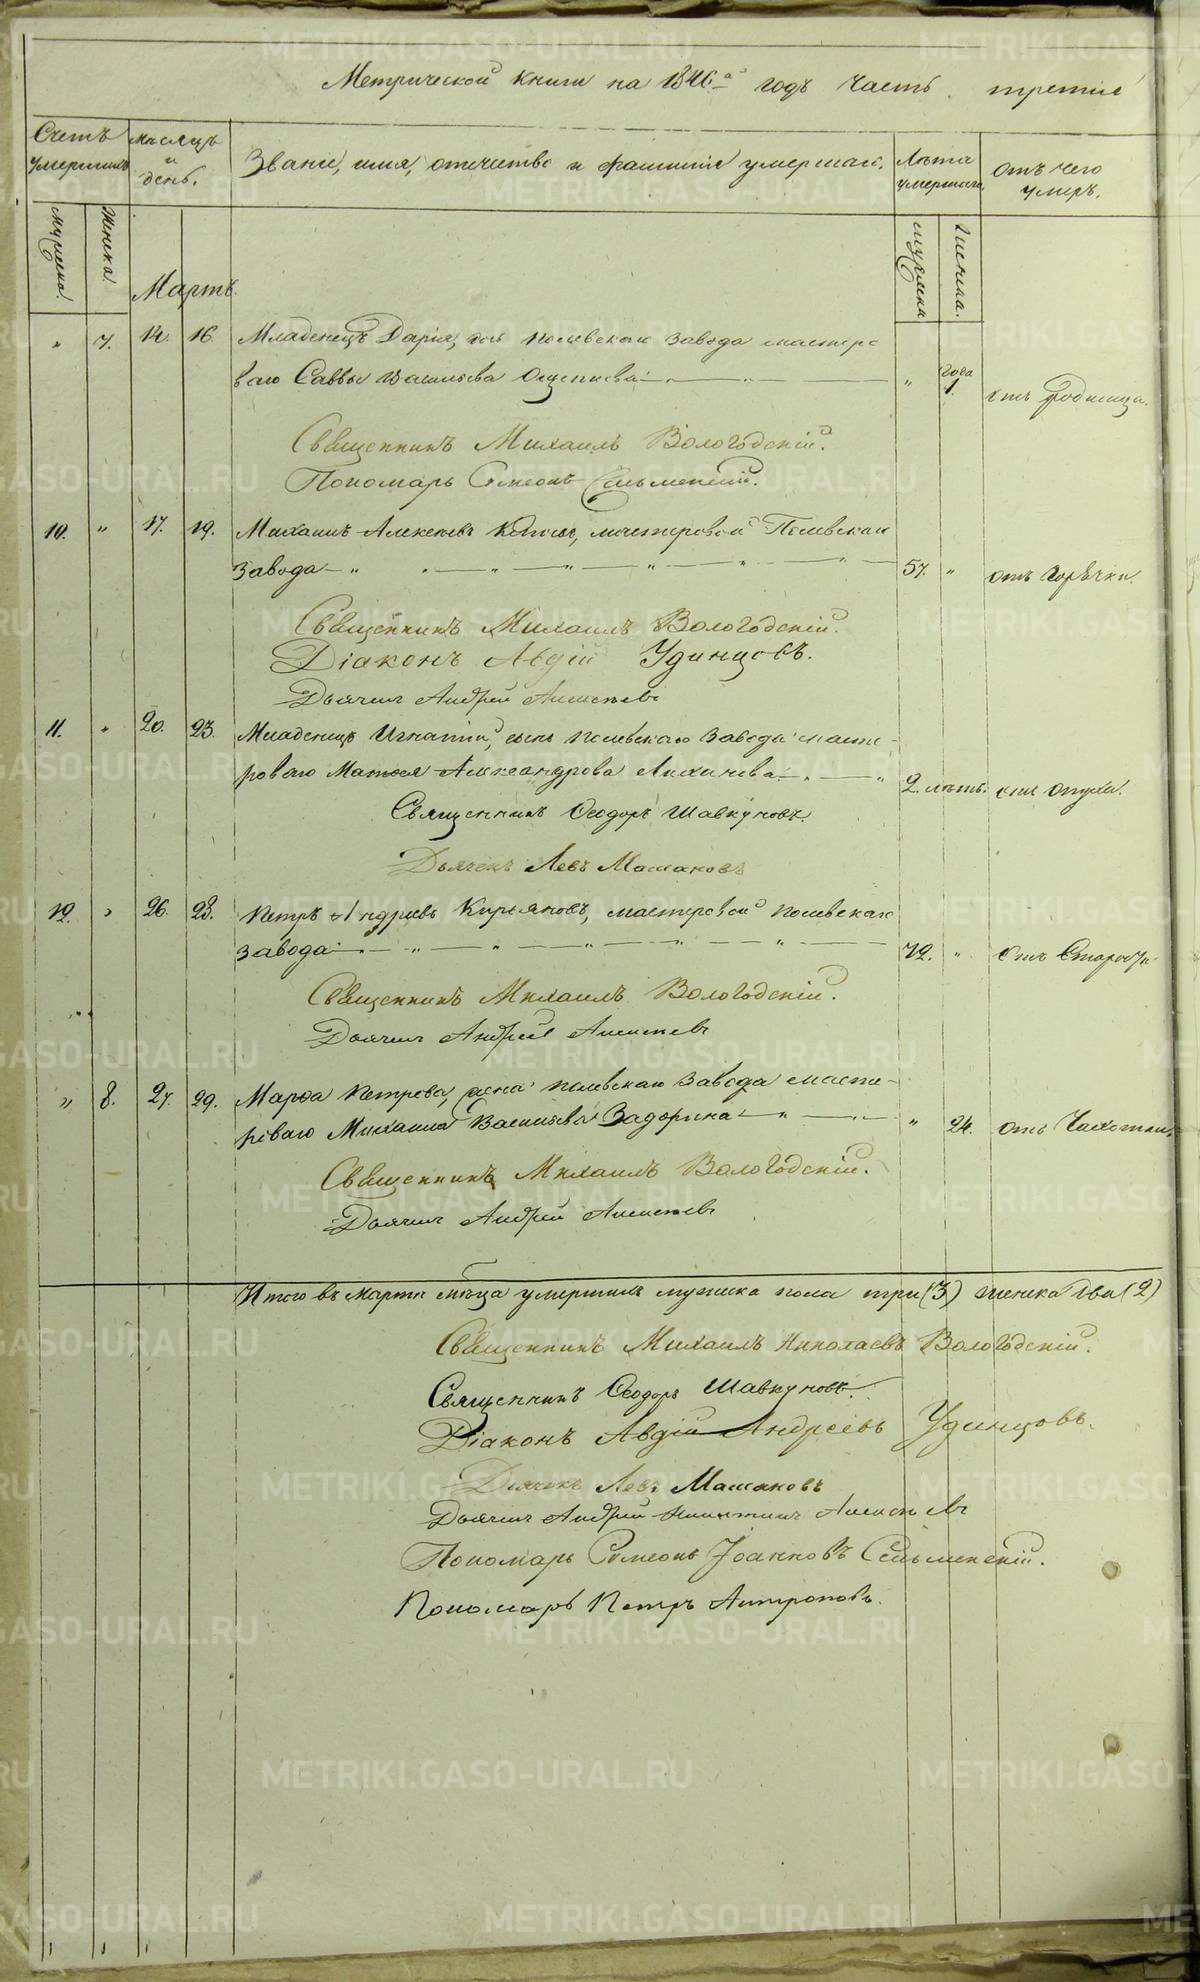 Метрической книги на 1846й годъ часть третия
Счетъ умершихъ
Мѣсяцъ и день.
Званіе, имя, отчество и фамилія умершаго.
Лѣта умершаго
Отъ чего умеръ.
Мужска.
Женска.
Мужска
Женска.
Мартъ.
" 7. 14. 16. Младенецъ Дарія, дочь Полевскаго завода мастеро
ваго Саввы Васильева " года 1. отъ родимца.
Священникъ Михаилъ Вологодскій.
Пономарь Симеонъ Сельменскій.
10. " 17. 19. Михаилъ Алексеевъ мастеровой Полевскаго
завода 57. " отъ горячки.
Священникъ Михаилъ Вологодскій.
Діаконъ Авдій Удинцовъ.
Дьячекъ Андрей
11. " 20. 23. Младенецъ Игнатій, сынъ Полевскаго завода масте-
роваго Матвея Александрова 2. лѣтъ. отъ опухи.
Священникъ Ѳеодоръ Шавкуновъ.
Дьячекъ Левъ Мамаковъ
12. " 26. 28. Петръ Андреевъ Кирьяновъ, мастеровой Полевскаго
завода 72. " отъ старости
Священникъ Михаилъ Вологодскій.
Дьячекъ Андрей
" 8. 27. 29. Марѳа Петрова, жена Полевскаго завода масте-
роваго Михаила Васильева Задорина " 24. отъ чахотки.
Священникъ Михаилъ Вологодскій.
Дьячекъ Андрей
Итого въ марте мѣсяца умершихъ мужска пола три (3) женска два (2)
Священникъ Михаилъ Николаевъ Вологодскій.
Священникъ Ѳеодоръ Шавкуновъ.
Діаконъ Авдій Андреевъ Удинцовъ.
Дьячекъ Левъ Мамаковъ
Дьячекъ Андрей
Пономарь Симеонъ Іоанновъ Сельменскій.
Пономарь Петръ Антроповъ.
METRIKI.GASO-URAL.RU